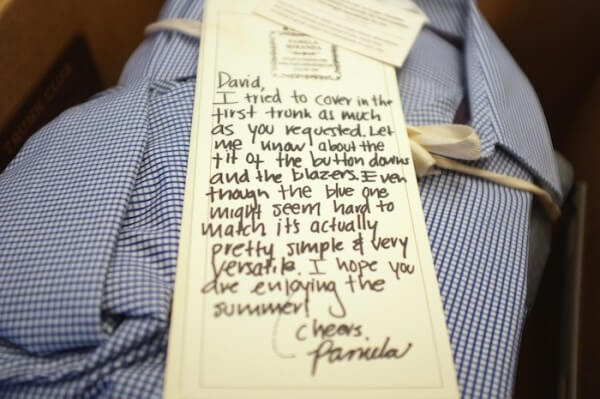 PAMELA
MIRANDA
David,
I tried to cover in the
first trunk as much
as you requested. Let
me know about the
fit of the button downs
and the blazers. Even
though the blue one
might seem hard to
match it's actually
pretty simple & very
versatile. I hope you
are enjoying the
summer!
Cheers,
Pamela
TRUNK CLUB